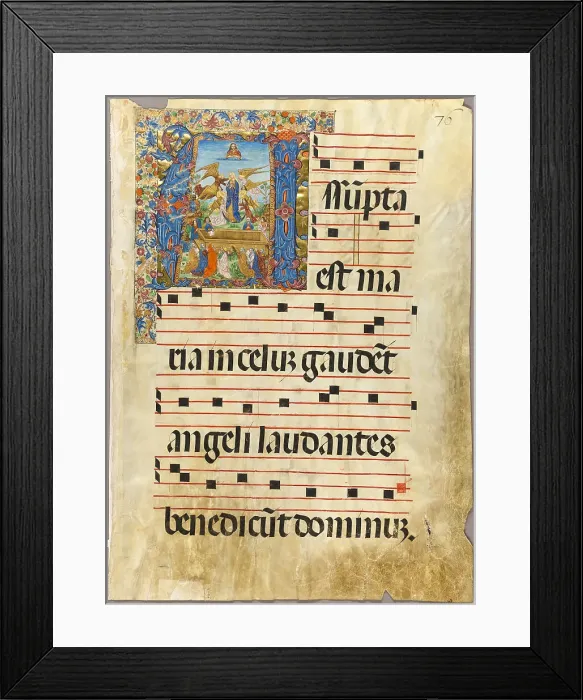 70
Assūpta
est ma
ria in celuꝫ gaudēt
angeli laudantes
benedicūt dominuꝫ.